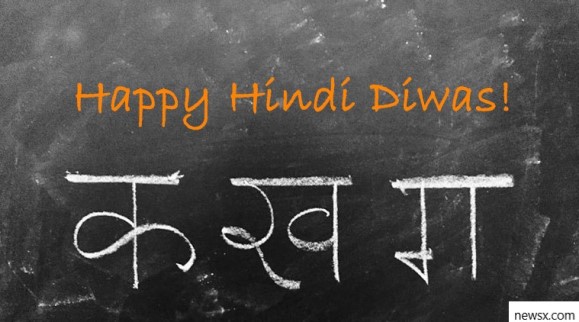 Happy Hindi Diwas!
क ख ग
newsx.com